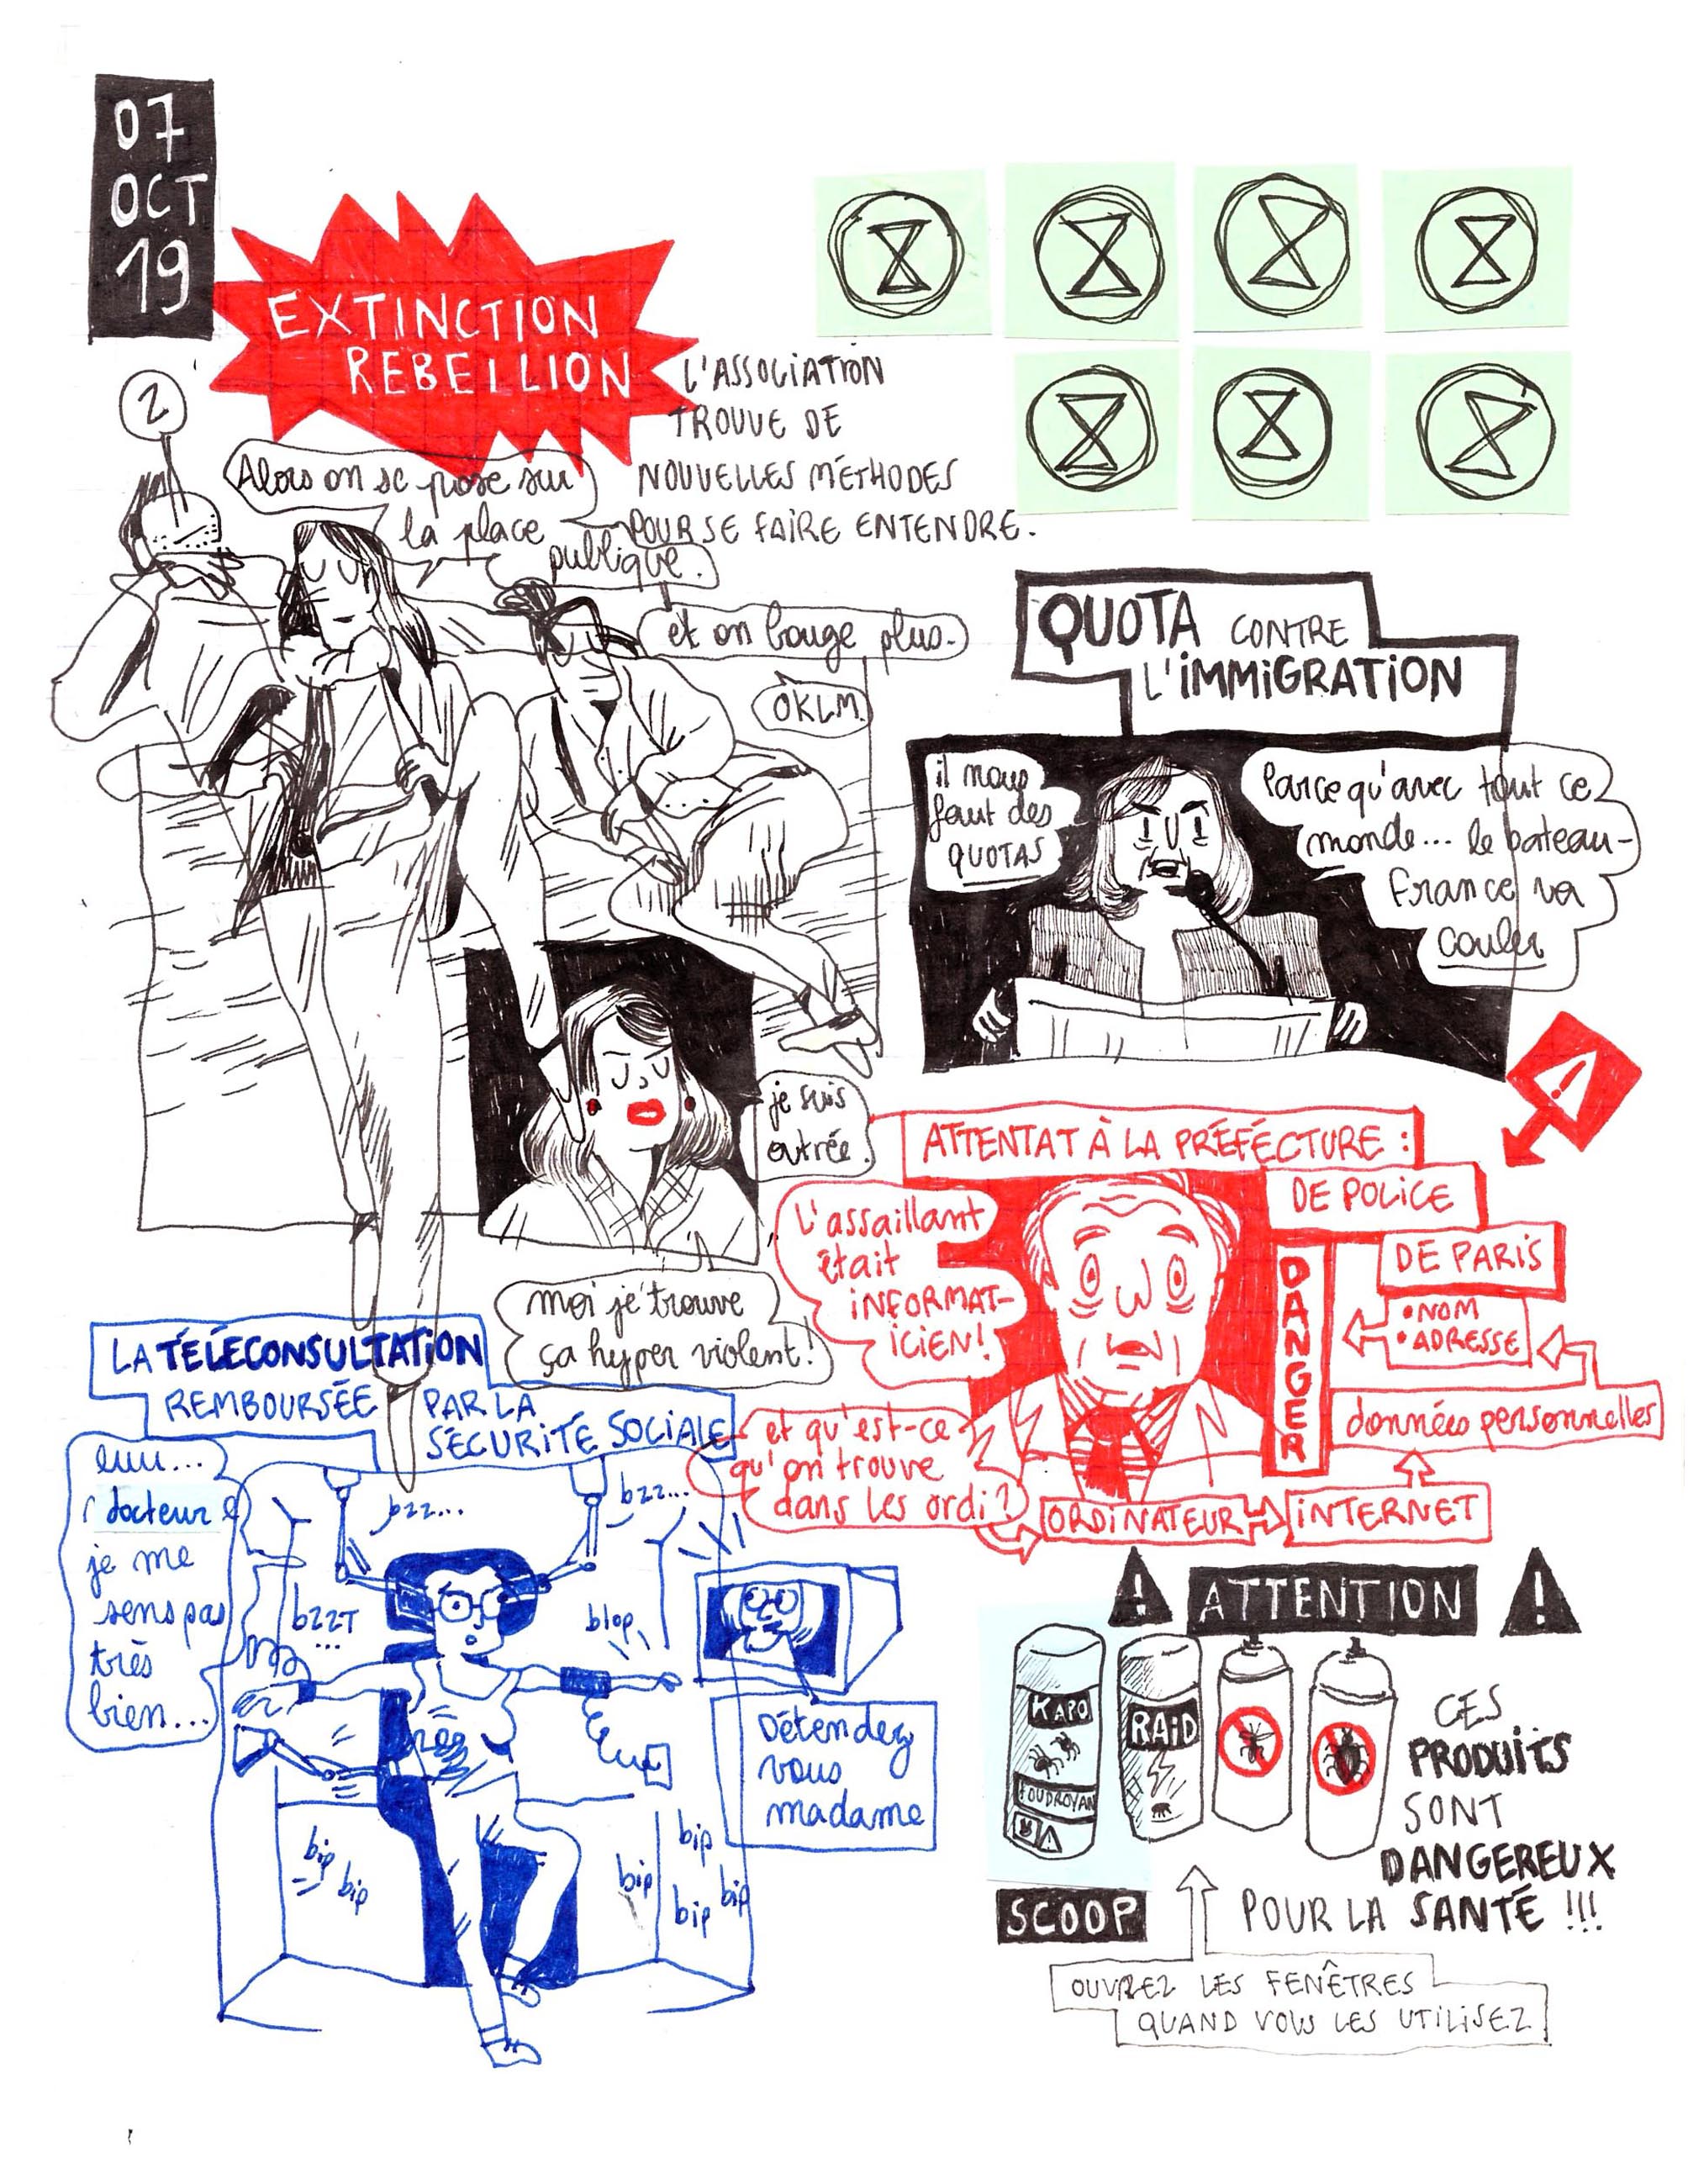 07
OCT
19
EXTINCTION
REBELLION
L'ASSOCIATION
TROUVE DE
NOUVELLES MÉTHODES
POUR SE FAIRE ENTENDRE.
2
Alors on se pose sur
la place
publique.
et on bouge plus.
OKLM.
je suis
outrée.
moi je trouve
ça hyper violent!
QUOTA CONTRE
L'IMMIGRATION
il nous
faut des
QUOTAS
Parce qu'avec tout ce
monde... le bateau-
France va
couler
!
ATTENTAT À LA PRÉFÉCTURE :
DE POLICE
DE PARIS
L'assaillant
était
INFORMAT-
ICIEN!
DANGER
•NOM
•ADRESSE
données personnelles
et qu'est-ce
qu'on trouve
dans les ordi?
ORDINATEUR
INTERNET
LA TÉLÉCONSULTATION
REMBOURSÉE PAR LA
SÉCURITÉ SOCIALE
euu...
docteur
je me
sens pas
très
bien...
bzz...
bzz...
bzzT
...
blop
Détendez
vous
madame
bip
bip
bip
bip
bip
bip
! ATTENTION !
KAPO
FOUDROYAN
RAID
CES
PRODUITS
SONT
DANGEREUX
POUR LA SANTÉ !!!
SCOOP
OUVREZ LES FENÊTRES
QUAND VOUS LES UTILISEZ